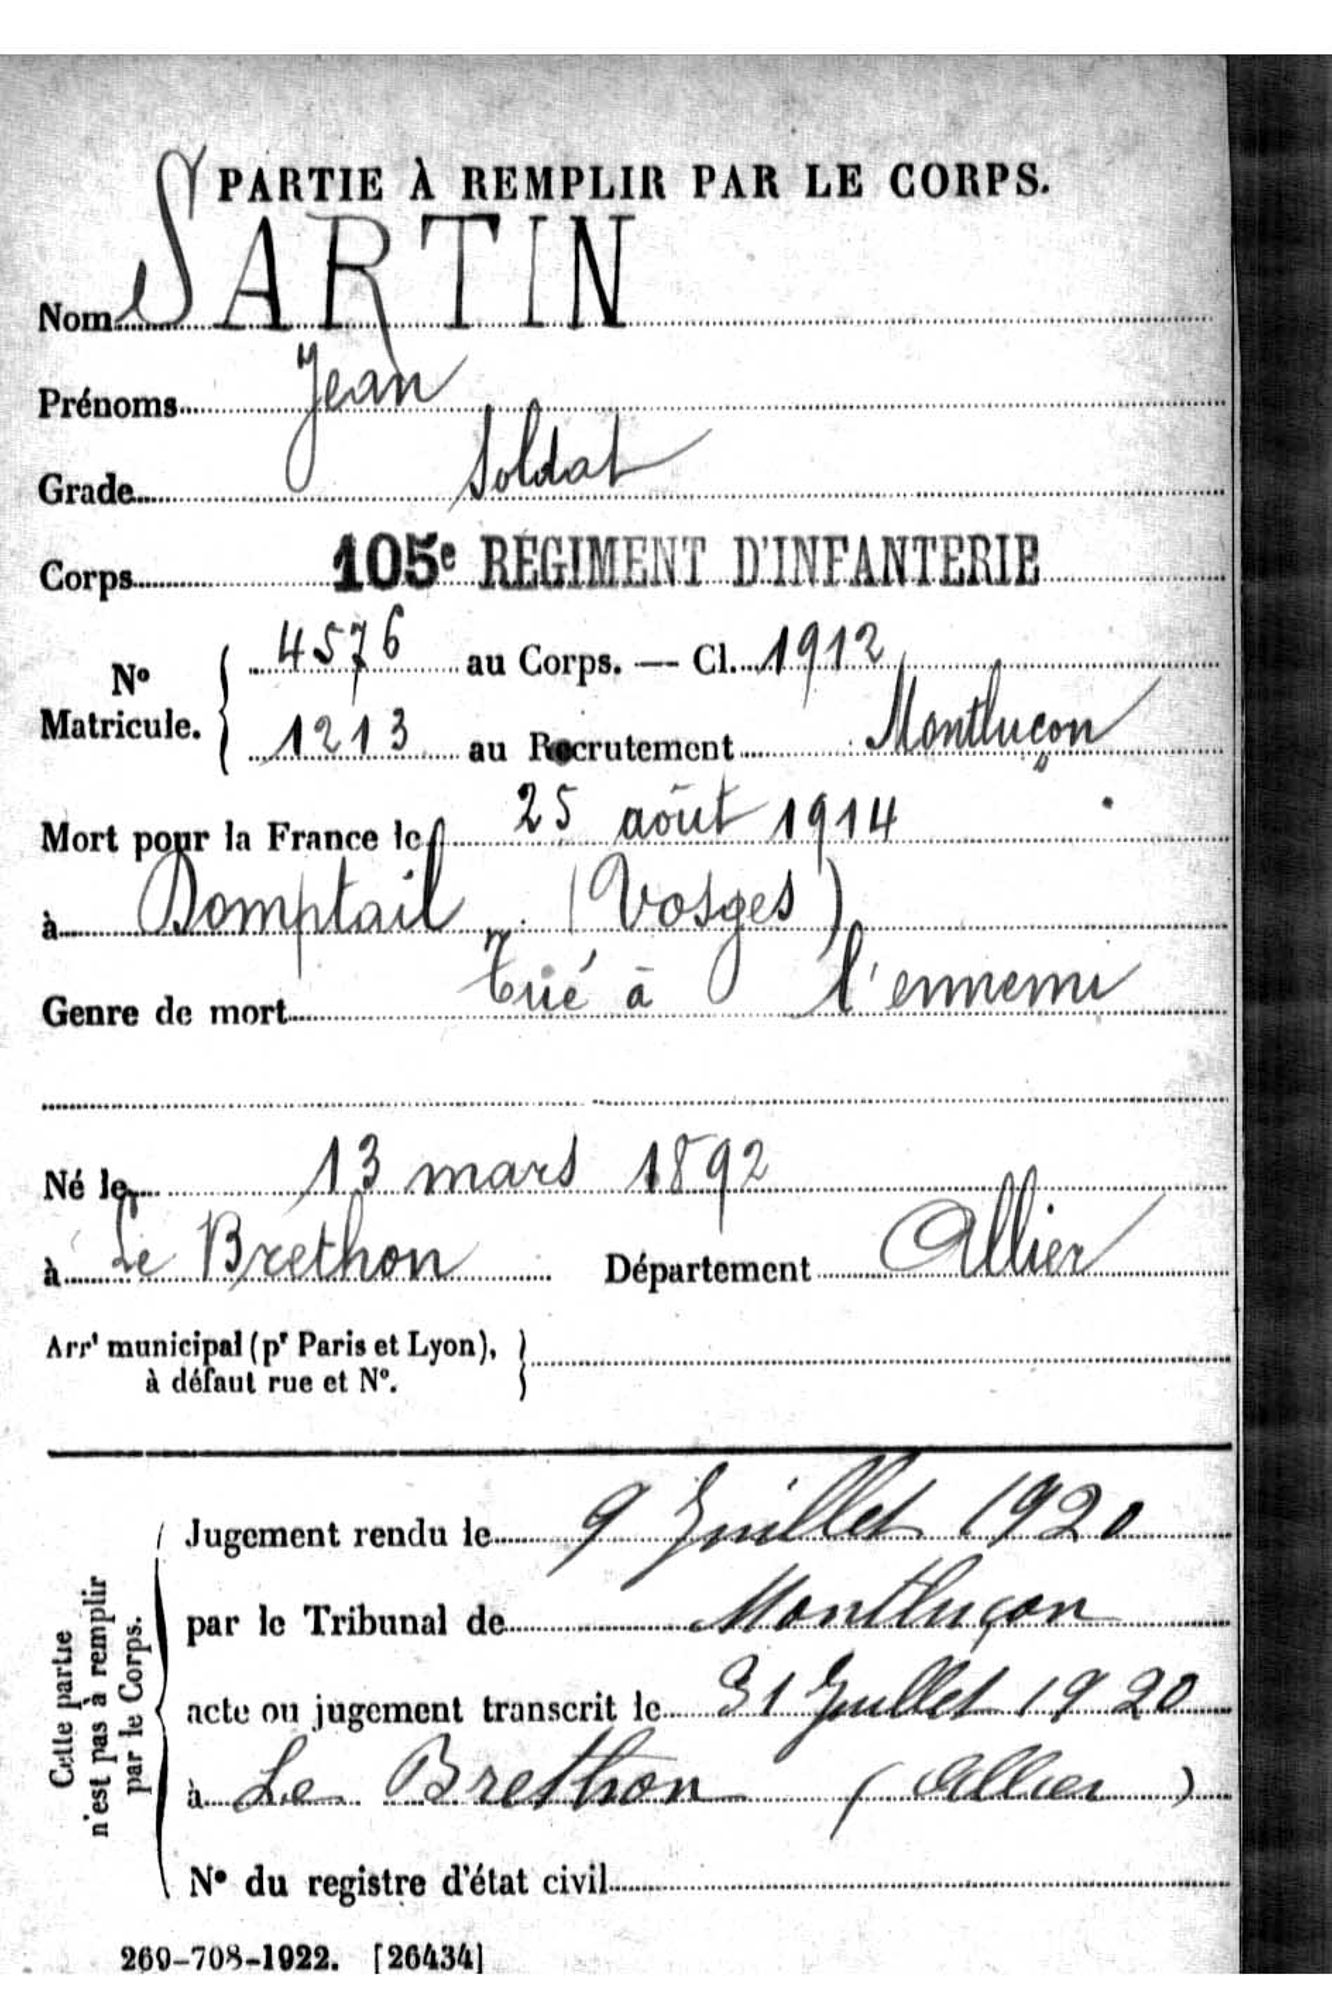 PARTIE À REMPLIR PAR LE CORPS.
Nom SARTIN
Prénoms Jean
Grade Soldat
Corps 105e RÉGIMENT D'INFANTERIE
No Matricule. { 4576 au Corps. — Cl. 1912
1213 au Recrutement Montluçon
Mort pour la France le 25 août 1914
à Domptail (Vosges)
Genre de mort Tué à l'ennemi
Né le 13 mars 1892
à Le Brethon Département Allier
Arrt municipal (pr Paris et Lyon), }
à défaut rue et No.
Cette partie
n'est pas à remplir
par le Corps.
Jugement rendu le 9 Juillet 1920
par le Tribunal de Montluçon
acte ou jugement transcrit le 31 Juillet 1920
à Le Brethon (Allier)
No du registre d'état civil
269-708-1922. [26434]